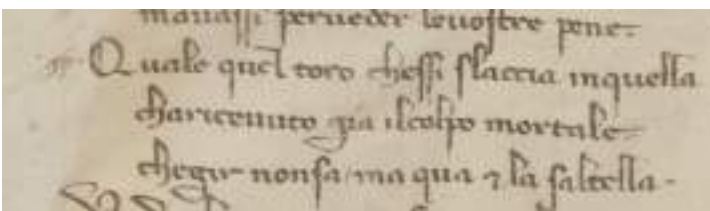 mavassi perveder levostre pene
Quale quel toro chessi slaccia inquella
charicevuto gia ilcolpo mortale
chegir nonsa ma qua ⁊ la saltella